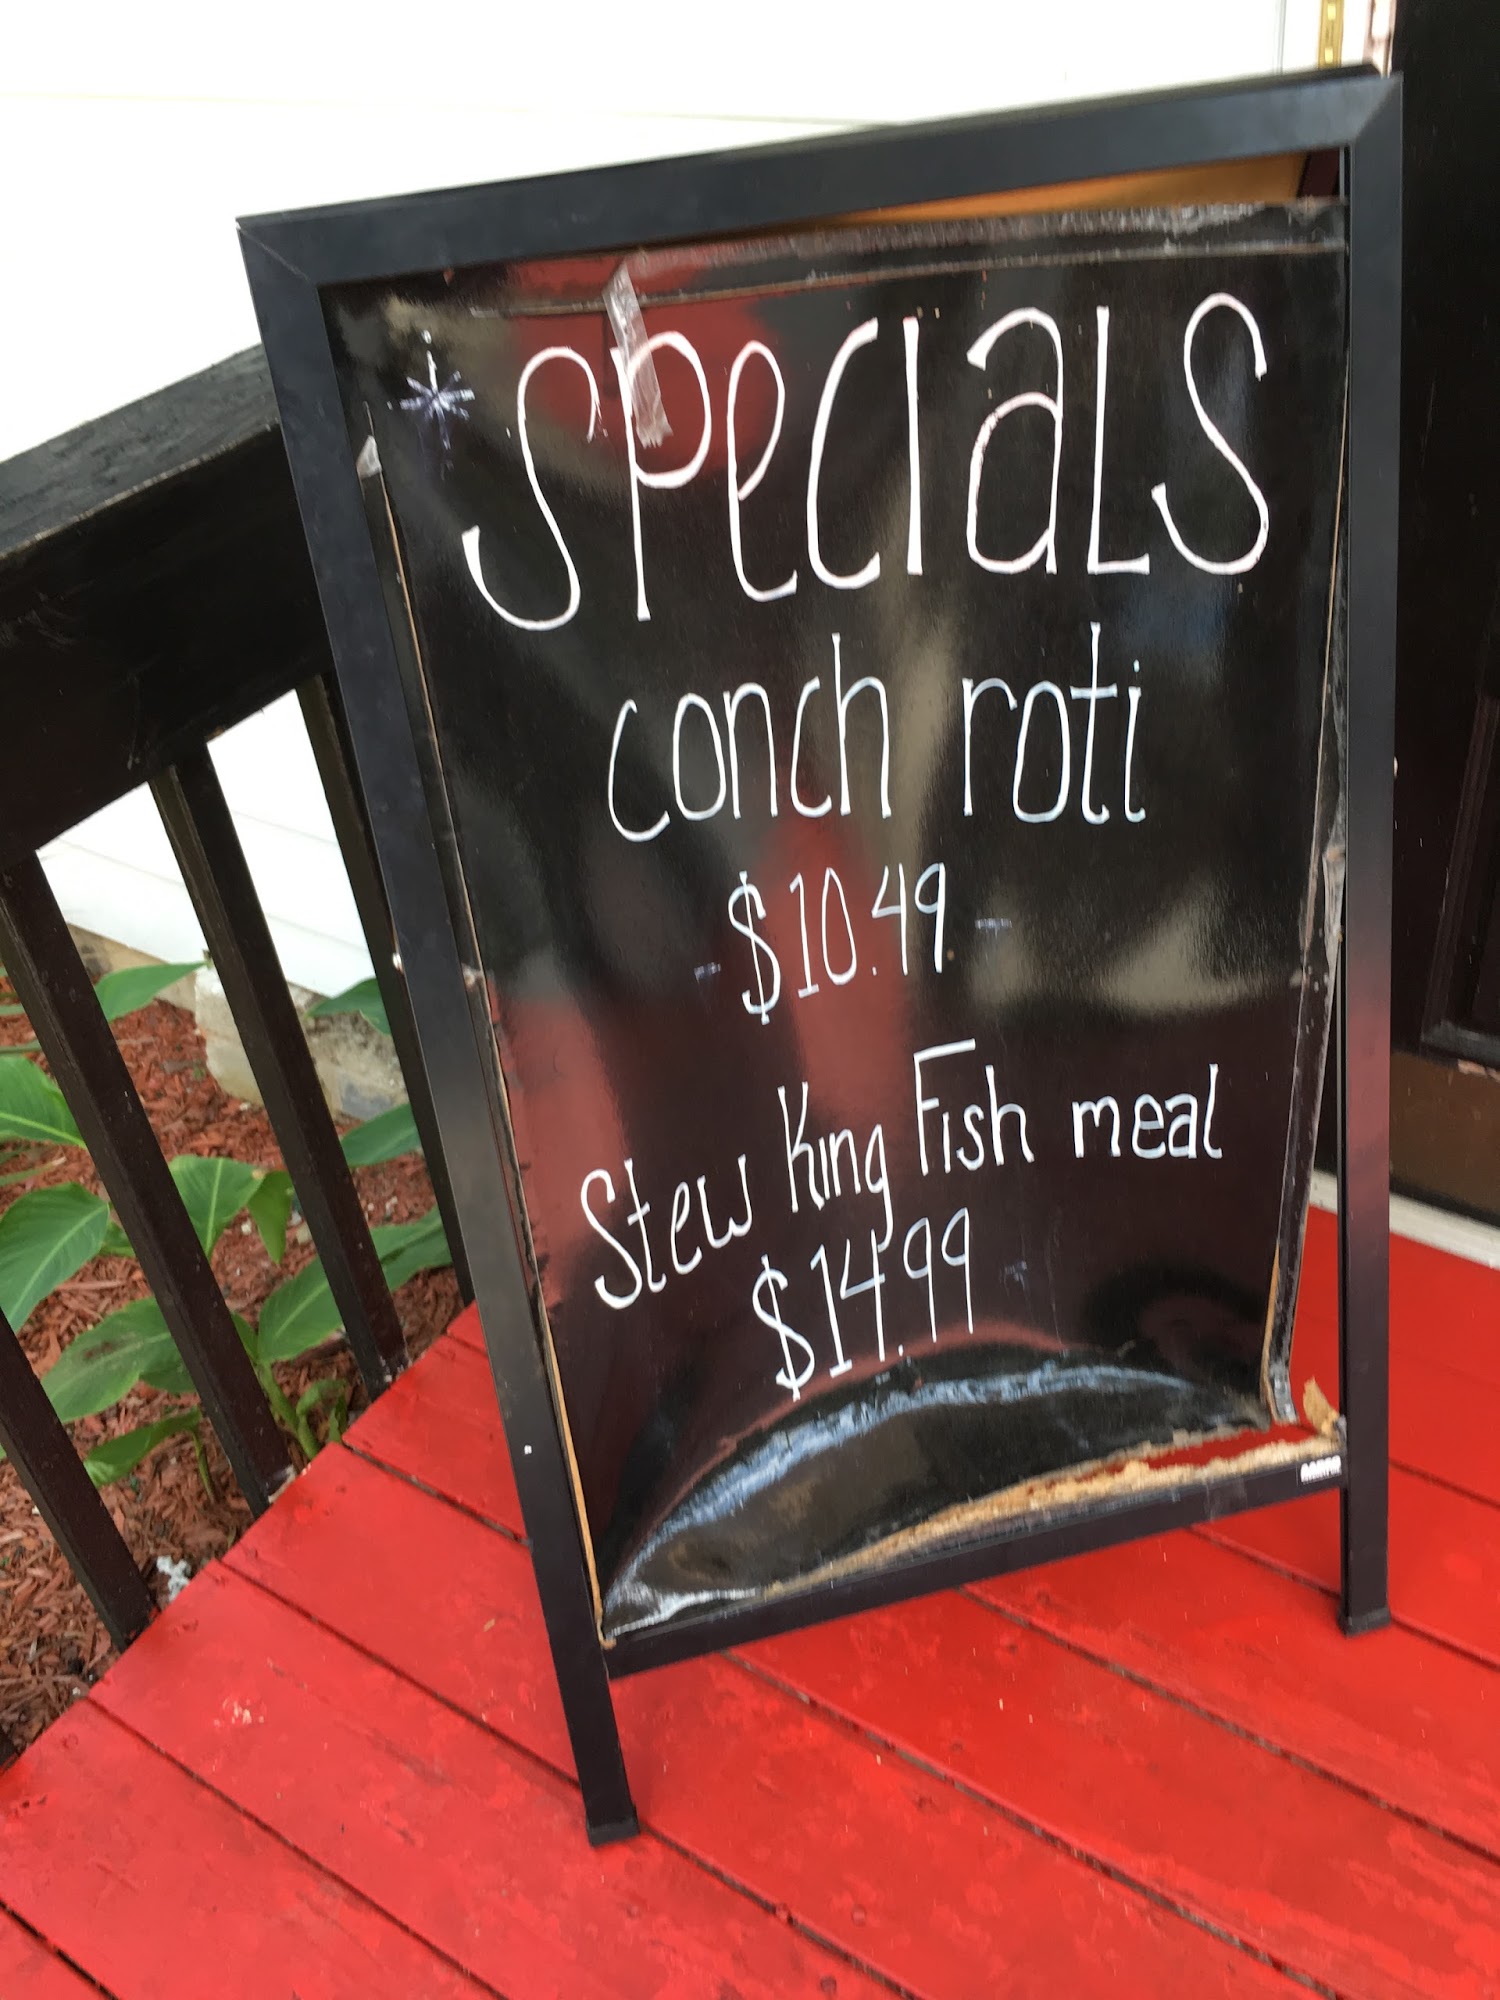 Specials
conch roti
- $10.49 -
Stew King Fish meal
$14.99